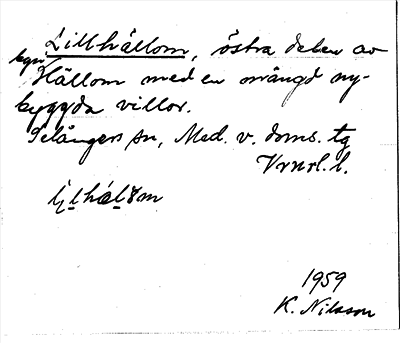 Lillhällom, östra delen av
byn Hällom med en mängd ny-
byggda villor.
Selångers sn, Med. v. doms. tg
Vrnrl. l.
1959
K. Nilsson